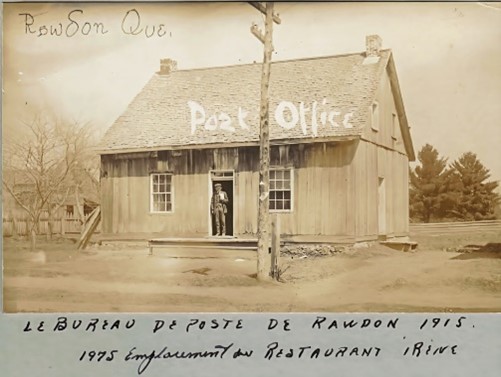 RAWDON QUE.
Post Office
LE BUREAU DE POSTE DE RAWDON 1915.
1975 Emplacement du RESTAURANT IRENE